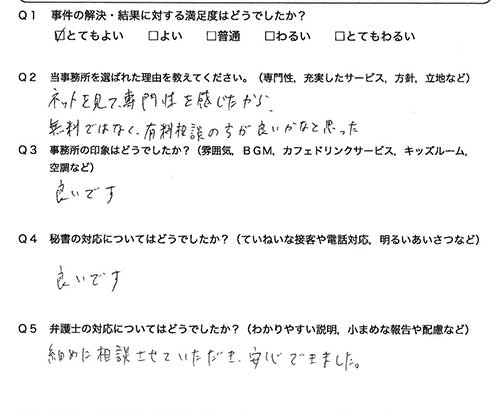 Q1 事件の解決・結果に対する満足度はどうでしたか?
☑とてもよい □よい □普通 □わるい □とてもわるい
Q2 当事務所を選ばれた理由を教えてください。(専門性，充実したサービス，方針，立地など)
ネットを見て、専門性を感じたから。
無料ではなく、有料相談の方が良いかなと思った
Q3 事務所の印象はどうでしたか?(雰囲気，BGM，カフェドリンクサービス，キッズルーム，
空調など)
良いです
Q4 秘書の対応についてはどうでしたか?(ていねいな接客や電話対応，明るいあいさつなど)
良いです
Q5 弁護士の対応についてはどうでしたか?(わかりやすい説明，小まめな報告や配慮など)
細めに相談させていただき、安心できました。